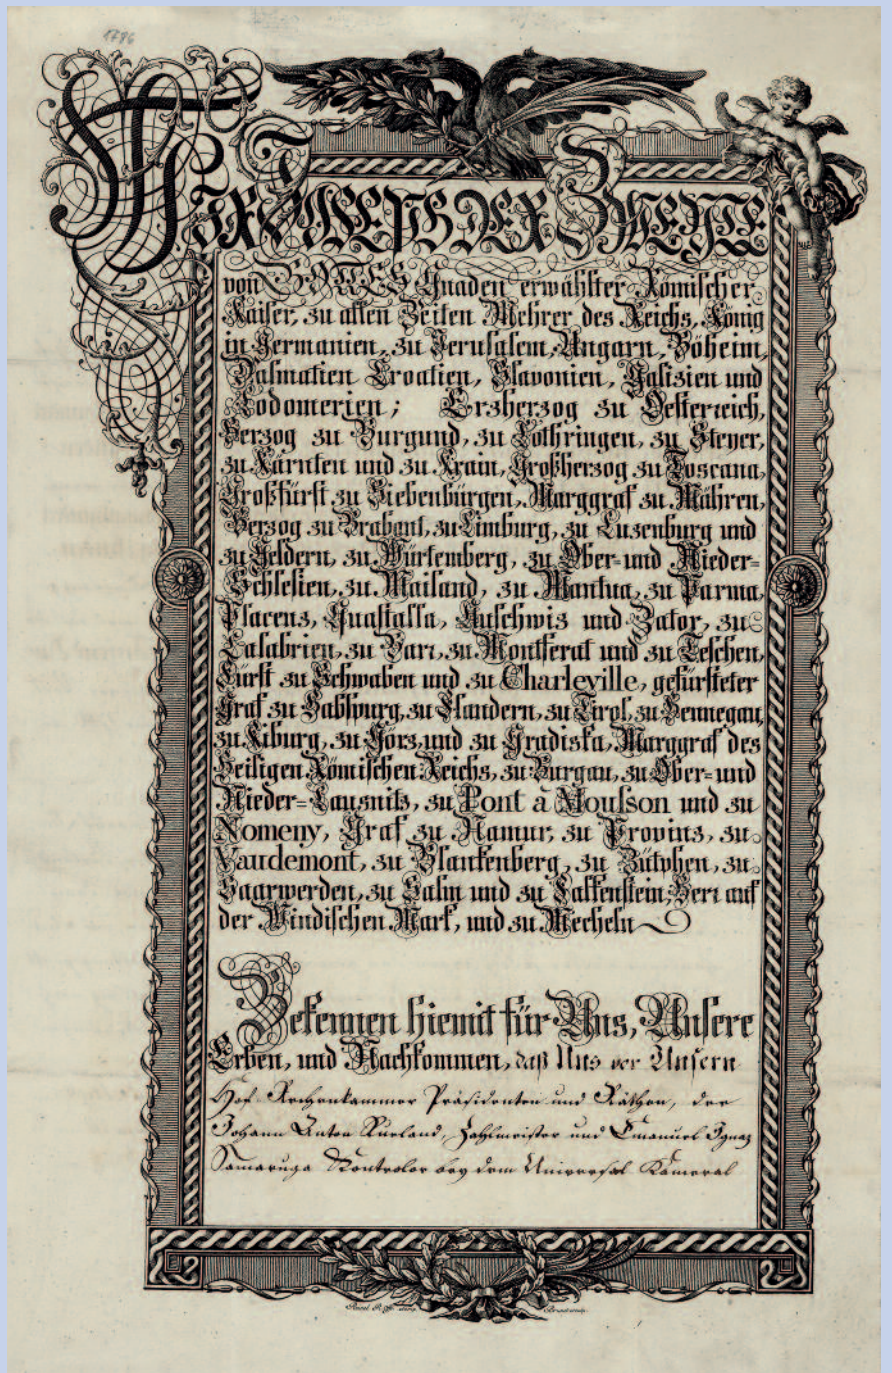 1786
WIR JOSEPH DER ZWEYTE
von GOTTES Gnaden erwählter Römischer
Kaiser, zu allen Zeiten Mehrer des Reichs, König
in Germanien, zu Jerusalem, Ungarn, Böheim,
Dalmatien Croatien, Slavonien, Galizien und
Lodomerien; Erzherzog zu Oesterreich,
Herzog zu Burgund, zu Lothringen, zu Steyer,
zu Kärnten und zu Krain, Großherzog zu Toscana,
Großfürst zu Siebenbürgen, Marggraf zu Mähren,
Herzog zu Brabant, zu Limburg, zu Luzenburg und
zu Geldern, zu Würtemberg, zu Ober- und Nieder-
Schlesien, zu Mailand, zu Mantua, zu Parma,
Placenz, Guastalla, Auschwiz und Zator, zu
Calabrien, zu Barr, zu Montferat und zu Teschen,
Fürst zu Schwaben und zu Charleville, gefürsteter
Graf zu Habspurg, zu Flandern, zu Tirol, zu Hennegau,
zu Kiburg, zu Görz, und zu Gradiska, Marggraf des
Heiligen Römischen Reichs, zu Burgau, zu Ober- und
Nieder-Lausnitz, zu Pont à Mousson und zu
Nomeny, Graf zu Namur, zu Provinz, zu
Vaudemont, zu Blankenberg, zu Zütphen, zu
Saarwerden, zu Salm und zu Falkenstein, Herr auf
der Windischen Mark, und zu Mecheln
Bekennen hiemit für Uns, Unsere
Erben, und Nachkommen, daß Uns vor Unsern
Hof Rechenkammer Präsidenten und Räthen, der
Johann Anton Rueland, Zahlmeister und Emanuel Ignaz
Samaruga Kontrolor bey dem Universal Kameral